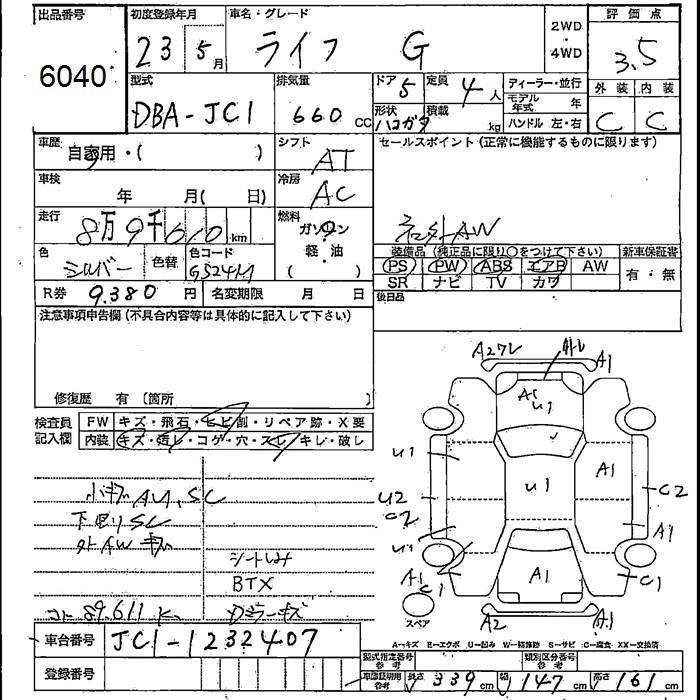 出品番号 初度登録年月 車名・グレード 2WD・4WD 評価点
6040 23 5月 ライフ G 3.5
型式 排気量 ドア 5 定員 4人 ディーラー・並行 外装 内装
DBA-JC1 660cc 形状 ハコガタ 積載 kg モデル年式 年 C C
ハンドル 左・右
車歴 自家用・( ) シフト AT セールスポイント(正常に機能するものに限ります)
車検 年 月( 日) 冷房 AC
走行 8万9千610km 燃料 ガソリン・軽油( ) 社外AW
色 シルバー 色替 色コード G524M 装備品(純正品に限り○をつけて下さい) 新車保証書
PS PW ABS エアB AW 有・無
SR ナビ TV カワ
R券 9.380円 名変期限 月 日 後日品
注意事項申告欄(不具合内容等は具体的に記入して下さい)
修復歴 有 〔箇所 〕
検査員記入欄 FW キズ・飛石・ヒビ割・リペア跡・X要
内装 キズ・汚れ・コゲ・穴・スレ・キレ・破し
小キズ AU,SC
下回りSC
外AWキズ
シートしみ
BTX
コト 89.611K Dミラーキズ
A2ワレ
A1
A1
U1
U1
U1
A1
U2
C2
C2
U1
A1
A1
C1
A1
C1
A2
A1
スペア
A-キズ E-エクボ U-凹み W-補修跡 S-サビ C-腐食 XX-交換済
車台番号 JC1-1232407
登録番号
型式指定番号 参考 類別区分番号 参考
車庫証明用 参考 長さ 339cm 幅 147cm 高さ 161cm